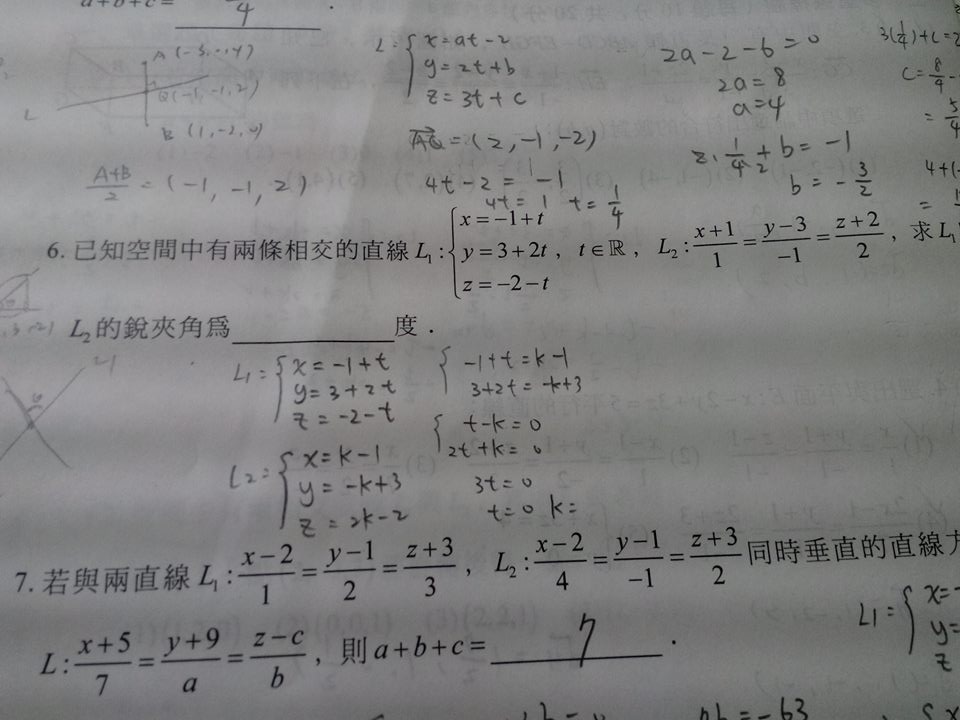 a+b+c=
4
A (-3, , 4)
Q(-1, -1, 2)
B (1, -2, 0)
A+B/2 = (-1, -1, 2)
L: { x=at-2
y=2t+b
z=3t+c
AQ = (2, -1, -2)
4t-2 = -1
4t = 1 t = 1/4
2a-2-6=0
2a=8
a=4
2·1/4 + b = -1
b = -3/2
3(1/4)+c=2
c=8/4-
= 5/4
6. 已知空間中有兩條相交的直線 L₁: { x=-1+t
y=3+2t , t∈ℝ , L₂: (x+1)/1 = (y-3)/-1 = (z+2)/2 , 求 L₁
z=-2-t
L₂ 的銳夾角為 度.
L₁= { x=-1+t
y=3+2t
z=-2-t
{ -1+t=k-1
3+2t=-k+3
{ t-k=0
2t+k=0
3t=0
t=0 k=
L₂= { x=k-1
y=-k+3
z=2k-2
7. 若與兩直線 L₁: (x-2)/1 = (y-1)/2 = (z+3)/3 , L₂: (x-2)/4 = (y-1)/-1 = (z+3)/2 同時垂直的直線方
L: (x+5)/7 = (y+9)/a = (z-c)/b , 則 a+b+c= 7 .
L1= { x=-
y=
z